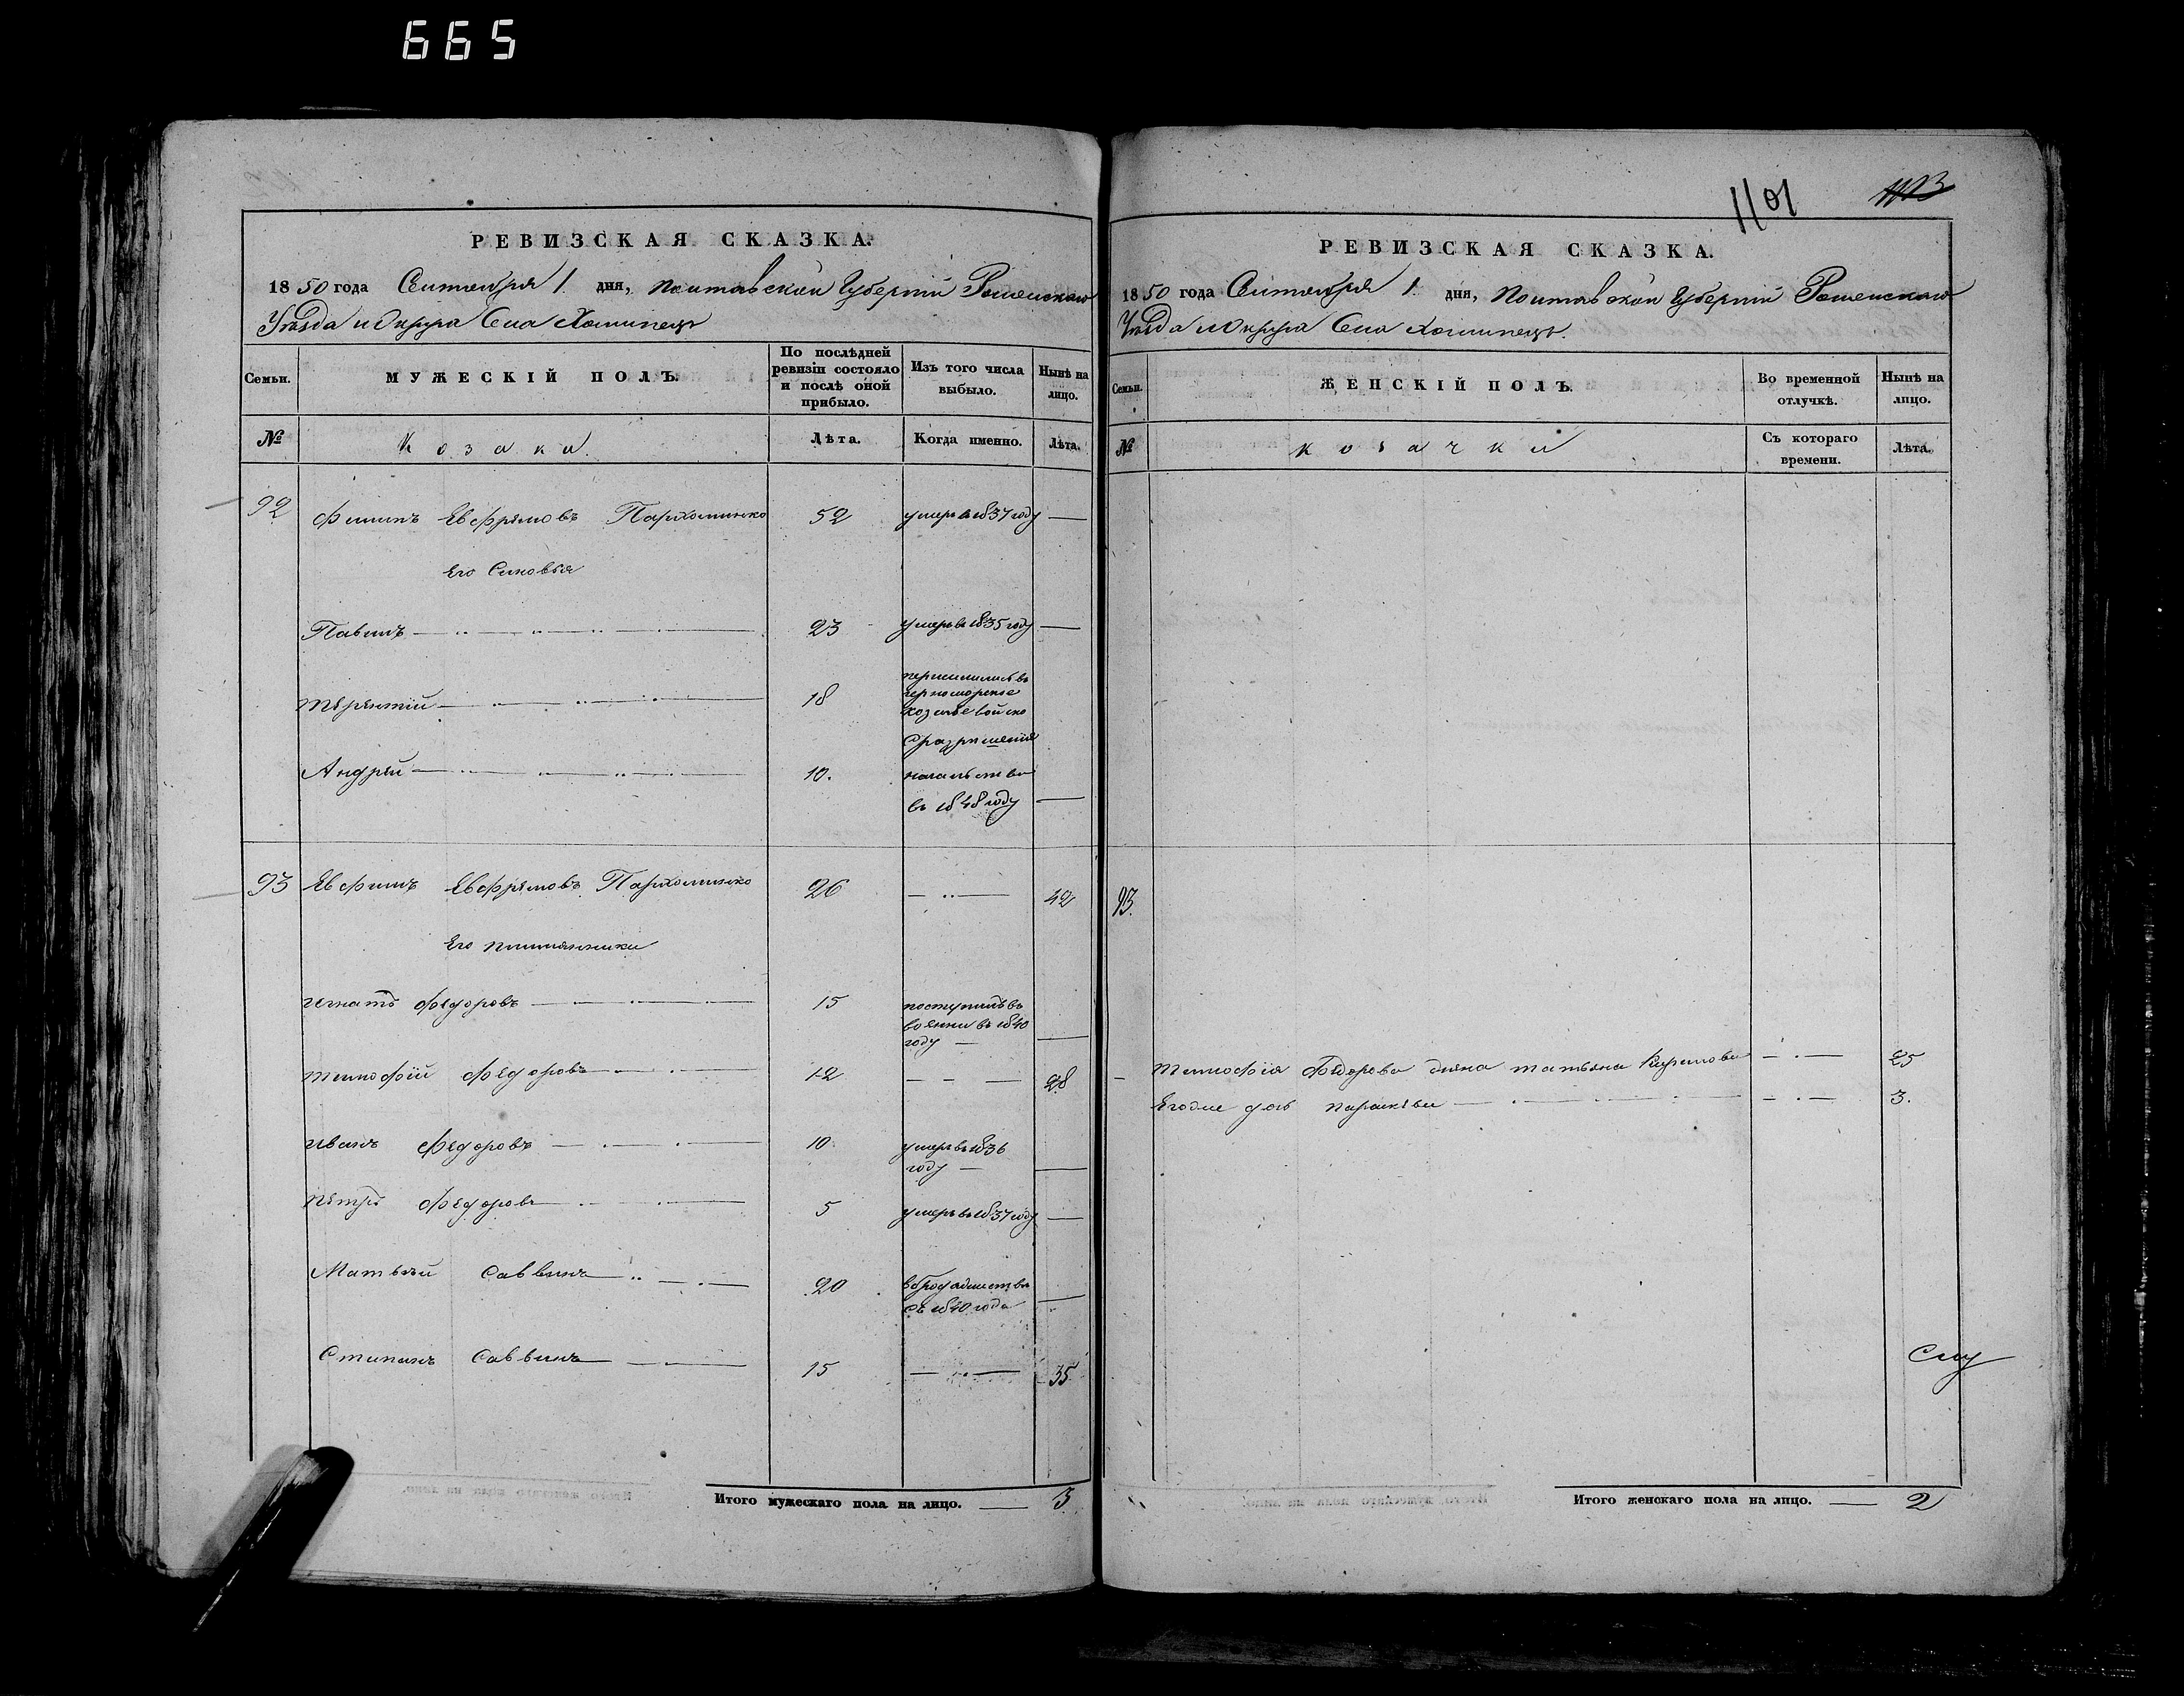 665
РЕВИЗСКАЯ СКАЗКА.
1850 года Сентября 1. дня, Полтавской Губернии Роменскаго
Уезда и Округа Села
Семьи.
МУЖЕСКІЙ ПОЛЪ.
По послѣдней ревизіи состояло и послѣ оной прибыло.
Изъ того числа выбыло.
Нынѣ на лицо.
№
Козаки.
Лѣта.
Когда именно.
Лѣта.
92
Филипъ Евфремовъ Пархоменко 52 умеръ в 1837 году —
Его Сыновья
Павелъ 23 умеръ в 1835 году —
Терентій 18
переселились въ
черноморское
козачье войско
С разрешенія
Андрей 10.
начальства
въ 1848 году —
93 Евфимъ Евфремовъ Пархоменко 26 — 42
Его племянники
Игнатъ Федоровъ 15
поступилъ въ
военни въ 1840
году —
Тимофей Федоровъ 12 — 28
Иванъ Федоровъ 10.
умеръ въ 1836
году —
Петръ Федоровъ 5 умеръ въ 1837 году —
Матвей Саввинъ 20
в бродяжестве
съ 1840 года —
Степанъ Саввинъ 15 — 35
Итого мужескаго пола на лицо. — 3
1101 1113
РЕВИЗСКАЯ СКАЗКА.
1850 года Сентября 1. дня, Полтавской Губернии Роменскаго
Уезда и Округа Села
Семьи.
ЖЕНСКІЙ ПОЛЪ.
Во временной отлучкѣ.
Нынѣ на лицо.
№
козачки
Съ котораго времени.
Лѣта.
93.
Тимофея Федорова жена Татьяна — 25
Его же дочь Параскева — 3.
Итого женскаго пола на лицо. — 2